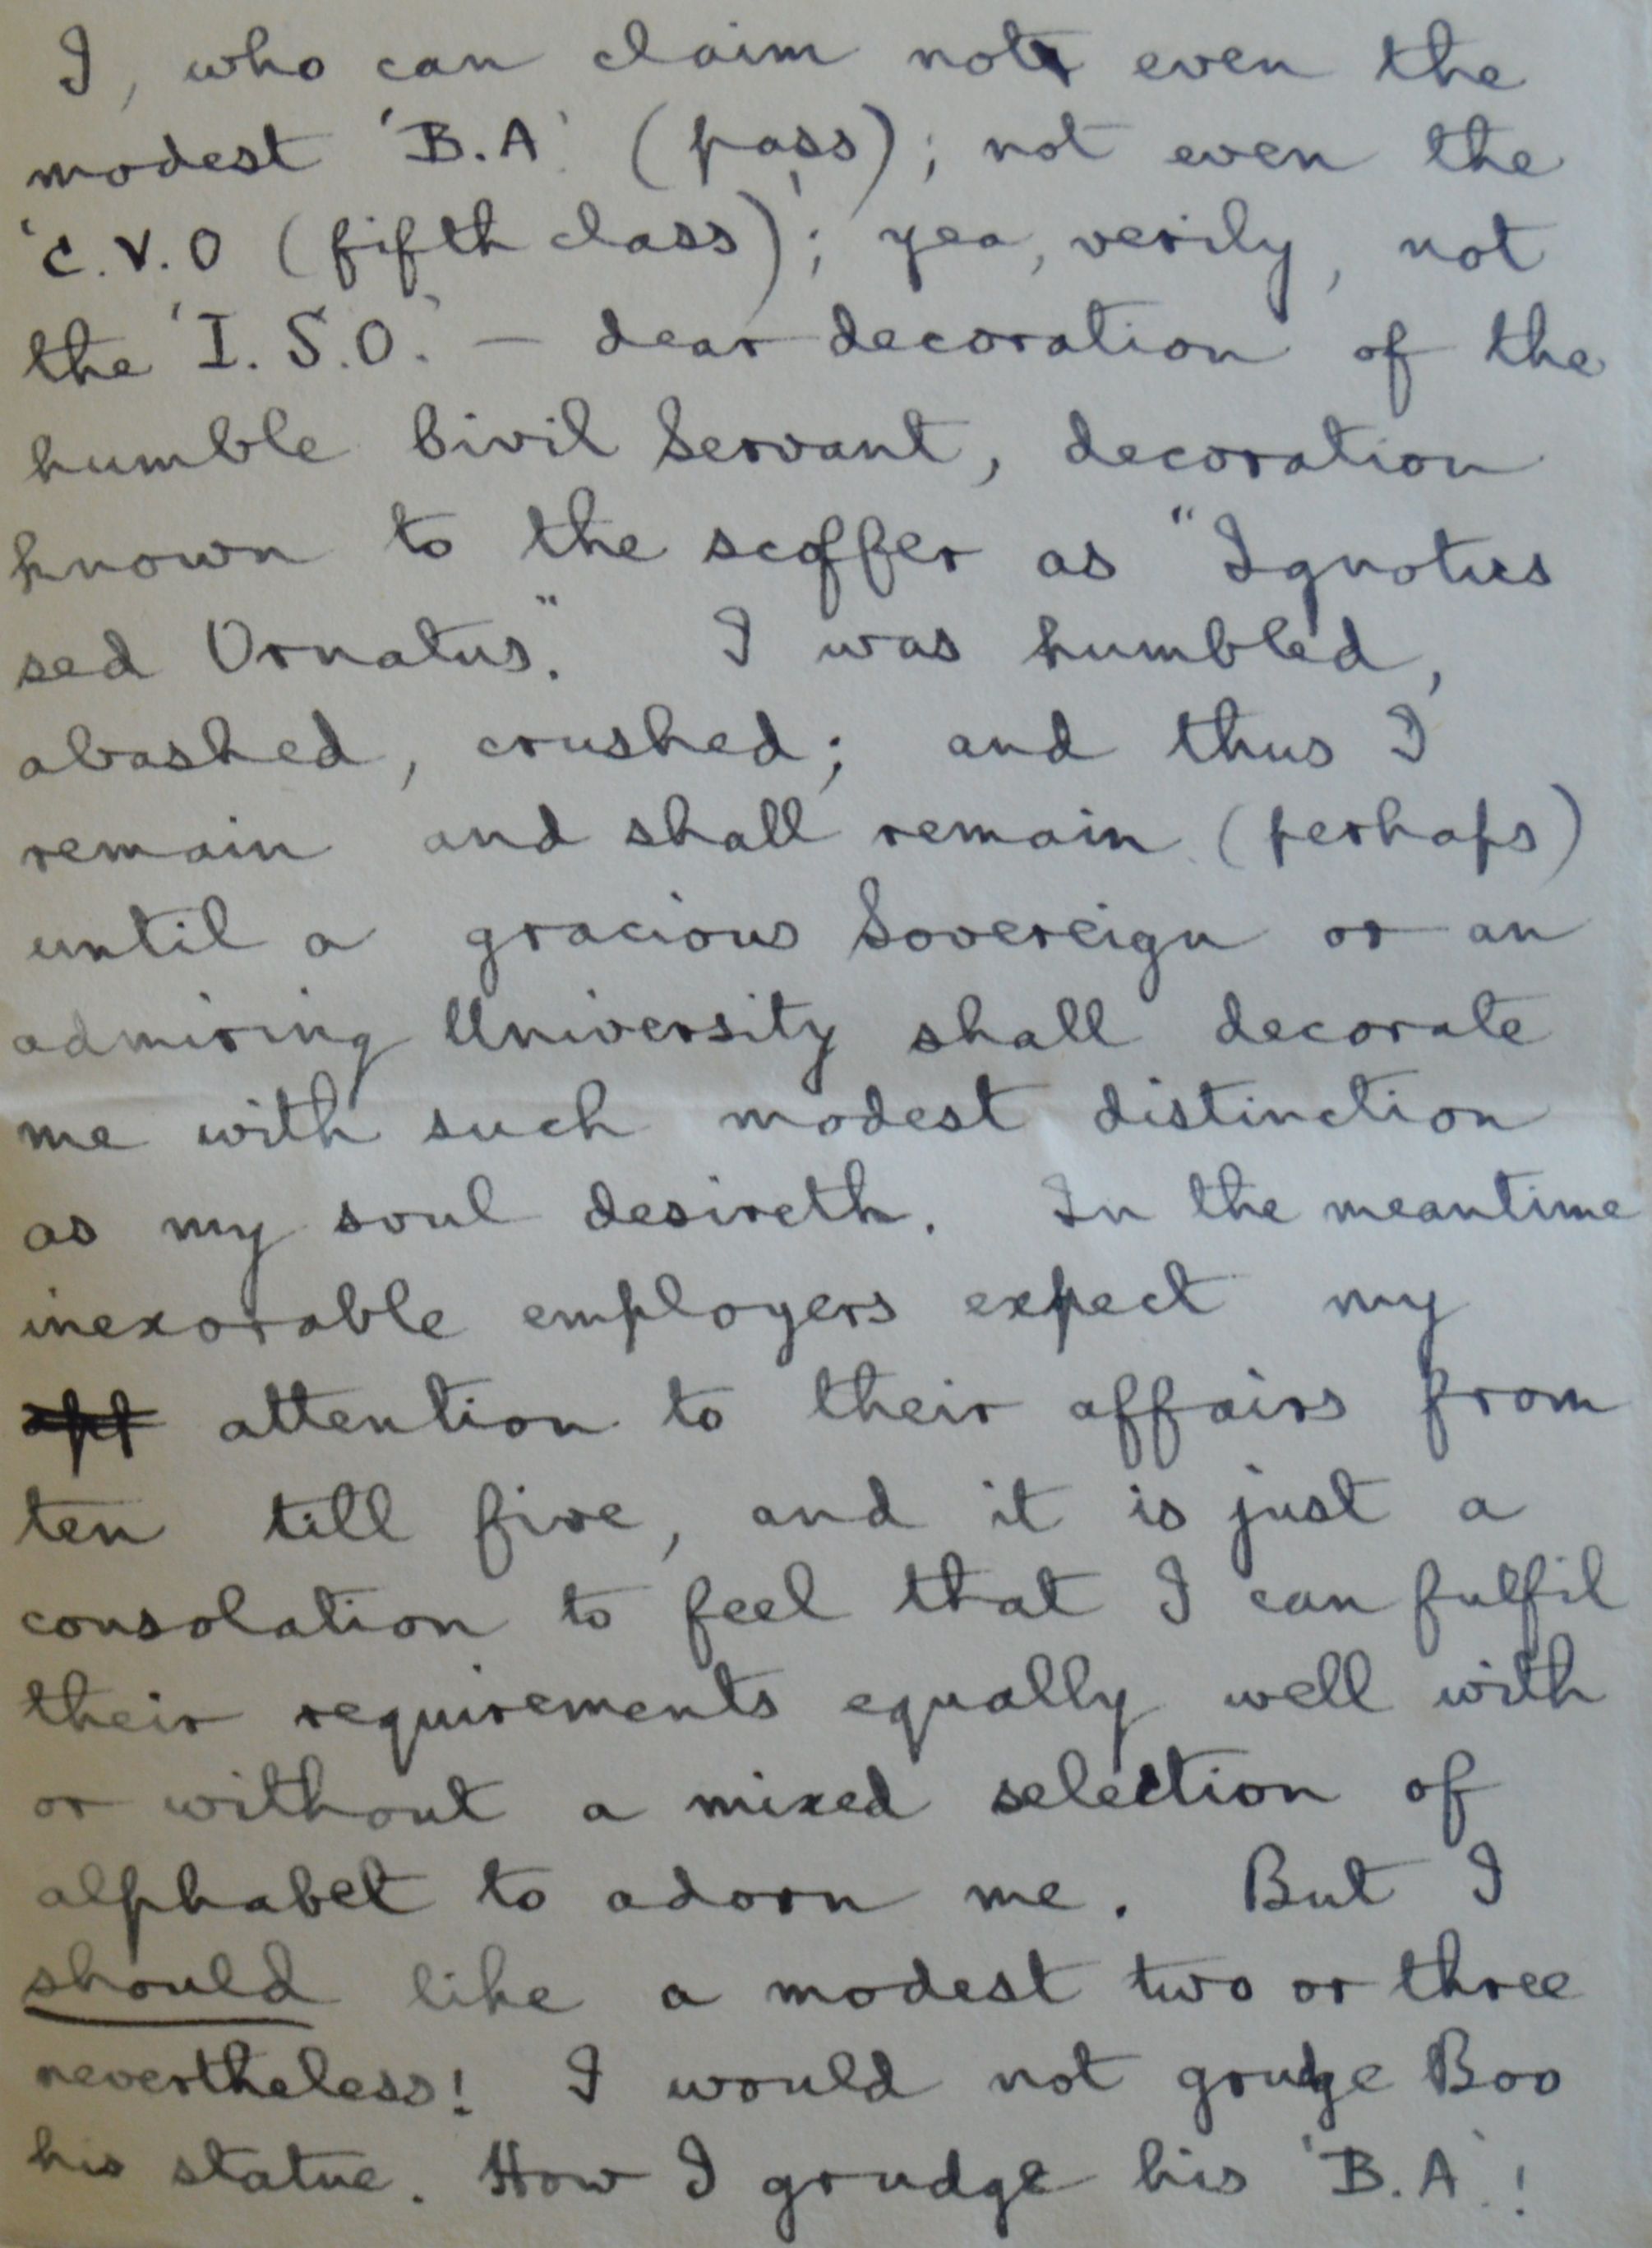 I, who can claim not even the
modest 'B.A' (pass); not even the
'C.V.O (fifth class)'; yea, verily, not
the 'I.S.O.' — dear decoration of the
humble Civil Servant, decoration
known to the scoffer as "Ignotus
sed Ornatus." I was humbled,
abashed, crushed; and thus I
remain and shall remain (perhaps)
until a gracious Sovereign or an
admiring University shall decorate
me with such modest distinction
as my soul desireth. In the meantime
inexorable employers expect my
attention to their affairs from
ten till five, and it is just a
consolation to feel that I can fulfil
their requirements equally well with
or without a mixed selection of
alphabet to adorn me. But I
should like a modest two or three
nevertheless! I would not grudge Boo
his statue. How I grudge his 'B.A'!